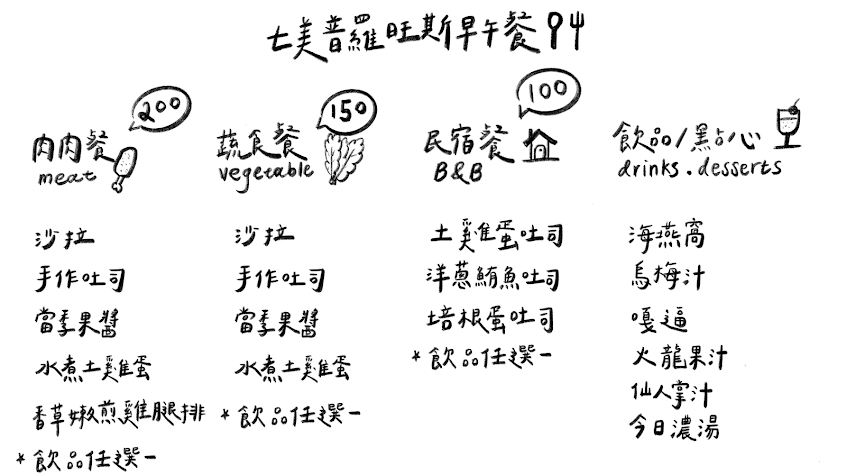 七美普羅旺斯早午餐菜單
200
肉肉餐
meat
沙拉
手作吐司
當季果醬
水煮土雞蛋
香草嫩煎雞腿排
*飲品任選一
150
蔬食餐
vegetable
沙拉
手作吐司
當季果醬
水煮土雞蛋
*飲品任選一
100
民宿餐
B&B
土雞蛋吐司
洋蔥鮪魚吐司
培根蛋吐司
*飲品任選一
飲品/點心
drinks.desserts
海燕窩
烏梅汁
嘎逼
火龍果汁
仙人掌汁
今日濃湯